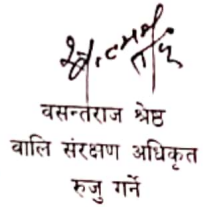 वसन्तराज श्रेष्ठ
वालि संरक्षण अधिकृत
रुजु गर्ने